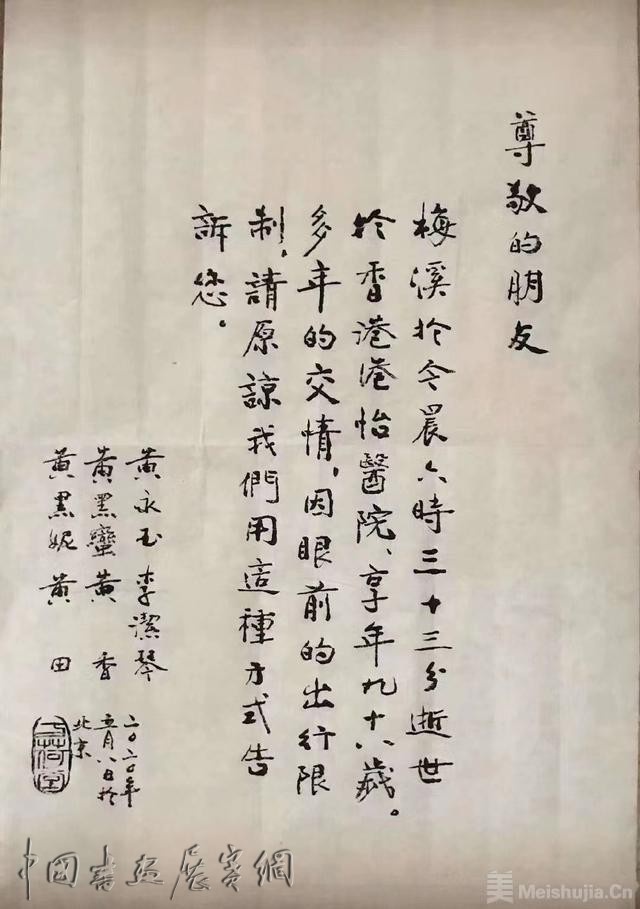 尊敬的朋友
梅溪於今晨六時三十三分逝世
於香港港怡醫院、享年九十八歲。
多年的交情，因眼前的出行限
制，請原諒我們用這種方式告
訴您。
黃永玉 李潔琴
黃黑蠻 黃香
黃黑妮 黃田
二〇二〇年
五月八日於
北京
中國書畫展賽網
美 Meishujia.Cn